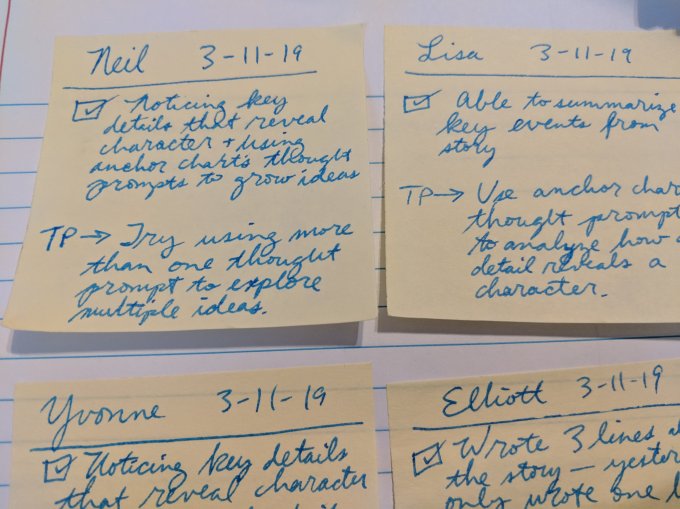 Neil 3-11-19
☑ Noticing key
details that reveal
character + using
anchor chart's thought
prompts to grow ideas
TP → Try using more
than one thought
prompt to explore
multiple ideas.
Lisa 3-11-19
☑ Able to summarize
key events from
story
TP → Use anchor
thought
to analyze how
detail reveals a
character.
Yvonne 3-11-19
☑ Noticing key details
that reveal character
Elliott 3-11-19
☑ Wrote 3 lines
the story —
only wrote one